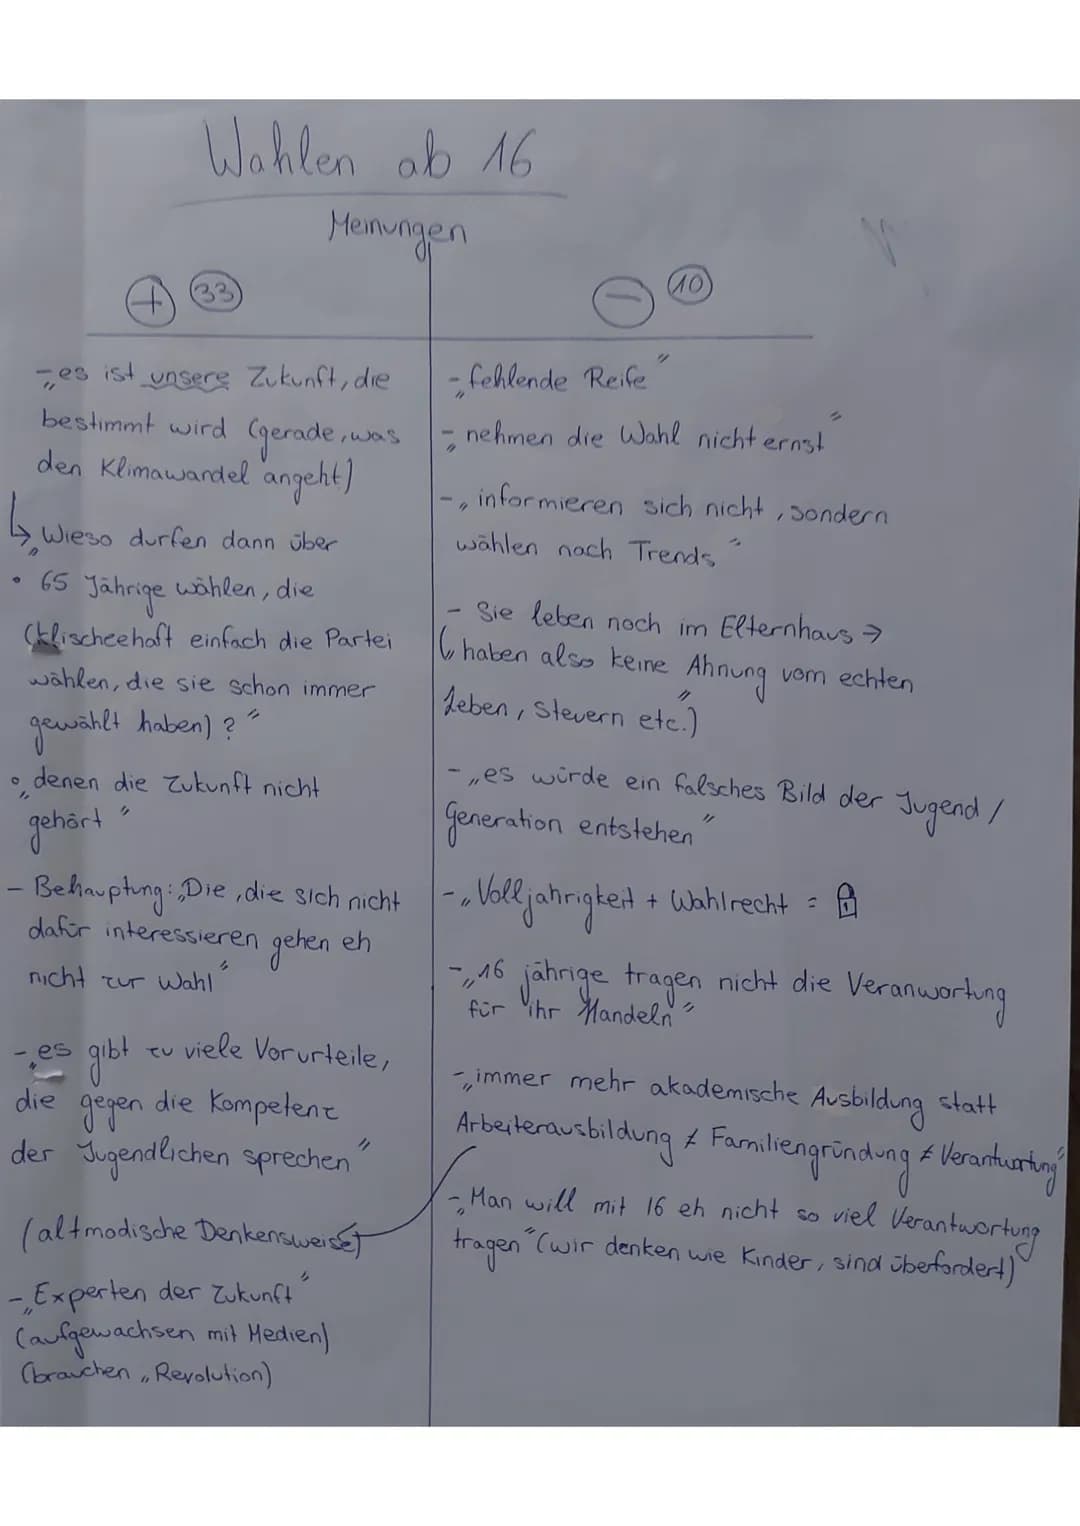 Wahlen ab 16
Meinungen
+ 33
- „es ist unsere Zukunft, die
bestimmt wird (gerade, was
den Klimawandel angeht)
↳ „Wieso durfen dann über
• 65 Jährige wählen, die
(klischeehaft einfach die Partei
wählen, die sie schon immer
gewählt haben) ?“
• „denen die Zukunft nicht
gehört“
- Behauptung: „Die, die sich nicht
dafür interessieren gehen eh
nicht zur Wahl“
- „es gibt zu viele Vorurteile,
die gegen die Kompetenz
der Jugendlichen sprechen“
(altmodische Denkensweise)
- „Experten der Zukunft“
(aufgewachsen mit Medien)
(brauchen „Revolution)
- 10
- „fehlende Reife“
- „nehmen die Wahl nicht ernst“
- „informieren sich nicht, sondern
wählen nach Trends“
- Sie leben noch im Elternhaus →
(„haben also keine Ahnung vom echten
Leben, Steuern etc.“)
- „es würde ein falsches Bild der Jugend /
Generation entstehen“
- „Volljahrigkeit + Wahlrecht = 🔒
- „16 jährige tragen nicht die Veranwortung
für ihr Handeln“
- „immer mehr akademische Ausbildung statt
Arbeiterausbildung ≠ Familiengründung ≠ Verantwortung“
- „Man will mit 16 eh nicht so viel Verantwortung
tragen“ (wir denken wie Kinder, sind überfordert)